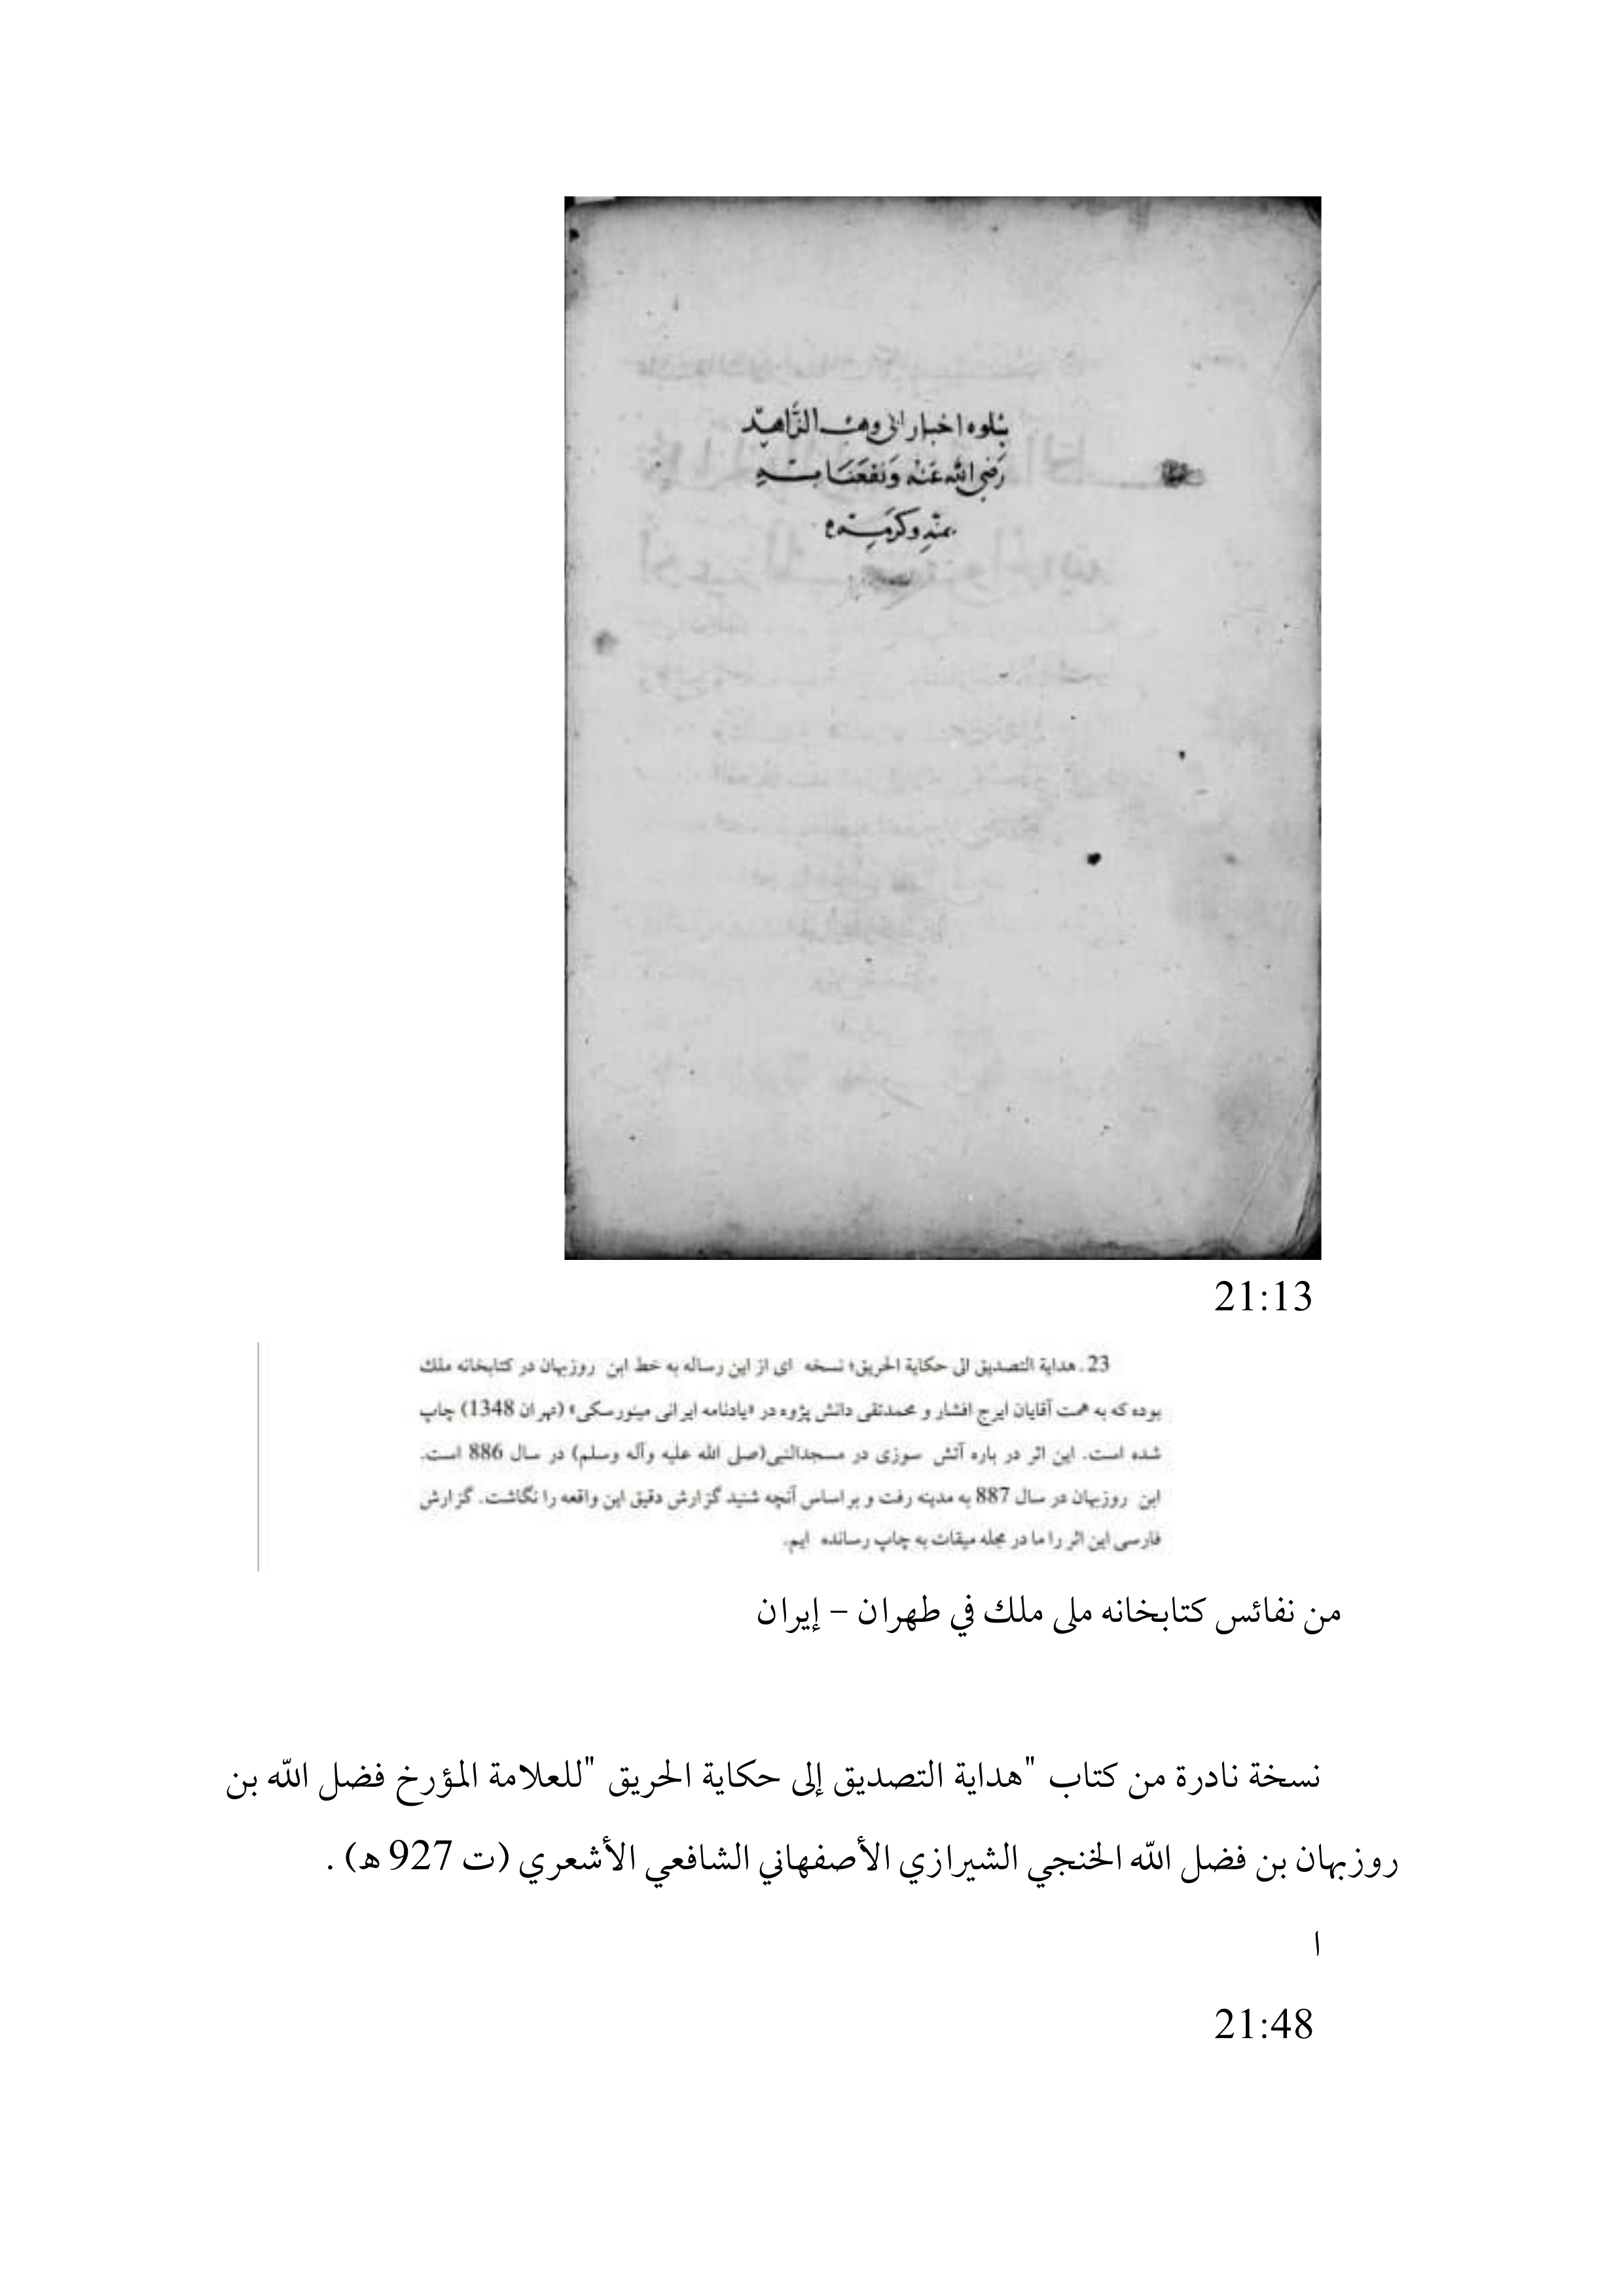 يتلوه اخبار ابى وهب الزَّاهِد
رَضِى الله عَنْه وَنَفَعَنَا بِهِ
بمَنِّهِ وكَرَمِه
21:13
23. هدایة التصدیق الی حکایة الحریق؛ نسخه ای از این رساله به خط ابن روزبهان در کتابخانه ملك
بوده که به همت آقایان ایرج افشار و محمدتقی دانش پژوه در «یادنامه ایرانی مینورسکی» (تهران 1348) چاپ
شده است. این اثر در باره آتش سوزی در مسجدالنبی(صل الله علیه وآله وسلم) در سال 886 است.
ابن روزبهان در سال 887 به مدینه رفت و بر اساس آنچه شنید گزارش دقیق این واقعه را نگاشت. گزارش
فارسی این اثر را ما در مجله میقات به چاپ رسانده ایم.
من نفائس كتابخانه ملى ملك في طهران – إيران
نسخة نادرة من كتاب "هداية التصديق إلى حكاية الحريق "للعلامة المؤرخ فضل الله بن
روزبهان بن فضل الله الخنجي الشيرازي الأصفهاني الشافعي الأشعري (ت 927 ه) .
ا
21:48